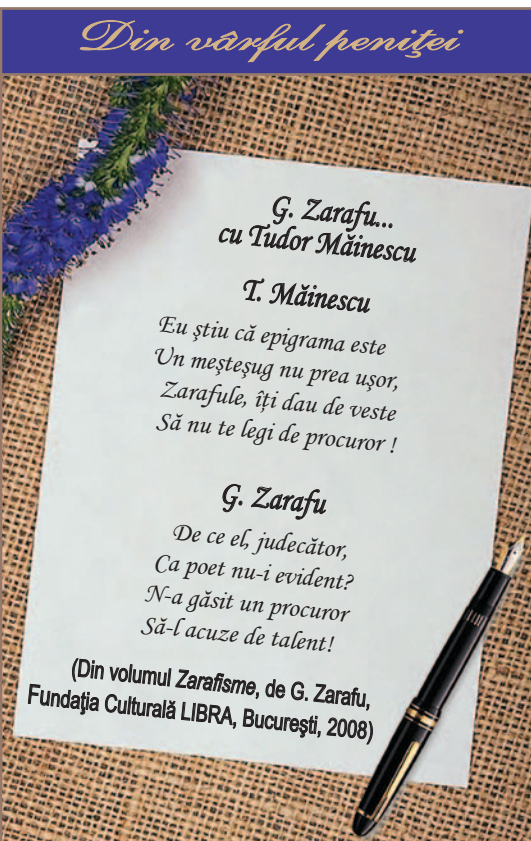 Din vârful peniţei
G. Zarafu...
cu Tudor Măinescu
T. Măinescu
Eu ştiu că epigrama este
Un meşteşug nu prea uşor,
Zarafule, îţi dau de veste
Să nu te legi de procuror !
G. Zarafu
De ce el, judecător,
Ca poet nu-i evident?
N-a găsit un procuror
Să-l acuze de talent!
(Din volumul Zarafisme, de G. Zarafu,
Fundaţia Culturală LIBRA, Bucureşti, 2008)